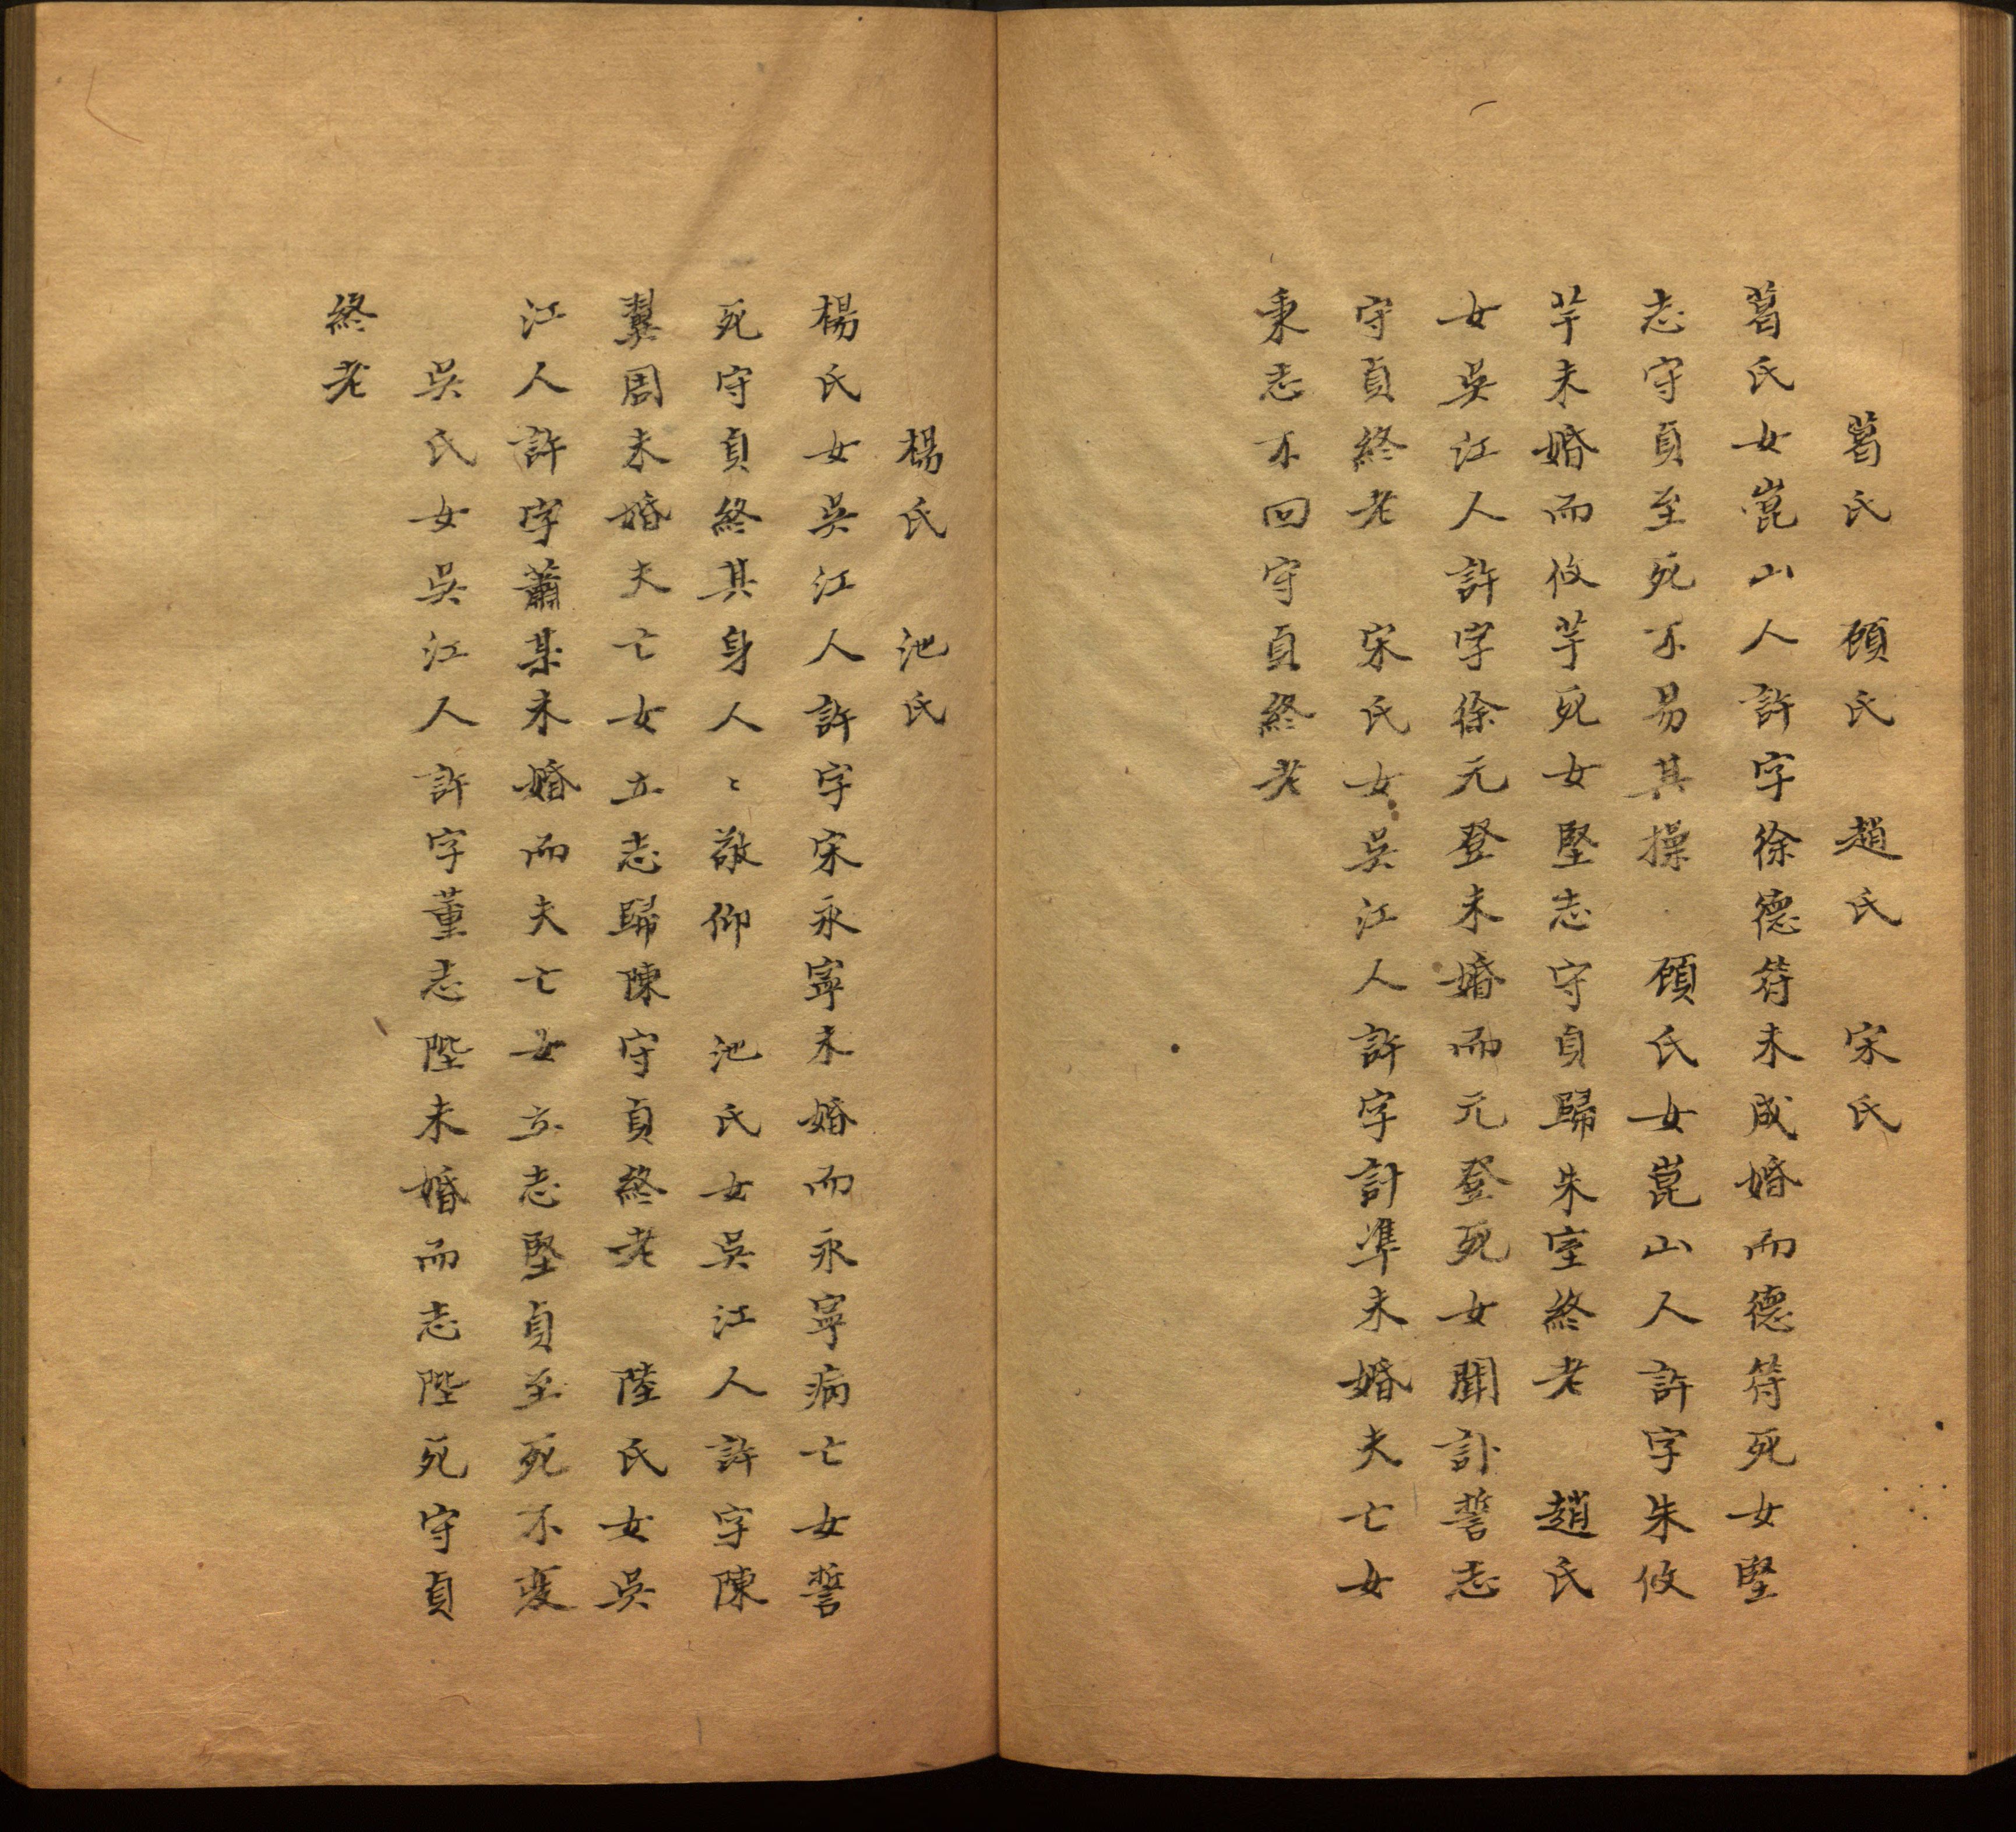 葛氏　顧氏　趙氏　宋氏
葛氏女崑山人許字徐德符未成婚而德符死女堅
志守貞至死不易其操　顧氏女崑山人許字朱攸
芋未婚而攸芋死女堅志守貞歸朱室終老　趙氏
女吳江人許字徐元登未婚而元登死女聞訃誓志
守貞終老　宋氏女吳江人許字計準未婚夫亡女
秉志不回守貞終老
楊氏　池氏
楊氏女吳江人許字宋永寧未婚而永寧病亡女誓
死守貞終其身人〻敬仰　池氏女吳江人許字陳
翼周未婚夫亡女立志歸陳守貞終老　陸氏女吳
江人許字蕭某未婚而夫亡女立志堅貞至死不变
吳氏女吳江人許字董志陛未婚而志陛死守貞
終老